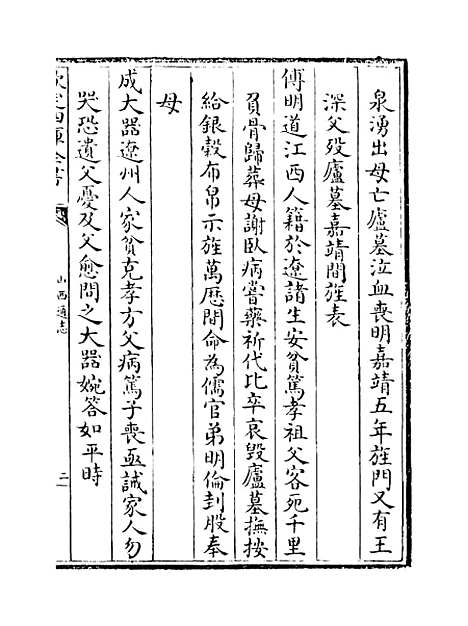 泉湧出母亡廬墓泣血喪明嘉靖五年旌門又有王
深父歿廬墓嘉靖間旌表
傅明道江西人籍於遼諸生安貧篤孝祖父客死千里
負骨歸葬母謝臥病嘗藥祈代比卒哀毀廬墓撫按
給銀穀布帛示旌萬厯間命為儒官弟明倫刲股奉
母
成大器遼州人家貧克孝方父病篤子喪亟誡家人勿
哭恐遺父憂及父愈問之大器婉答如平時
欽定四庫全書
山西通志
二